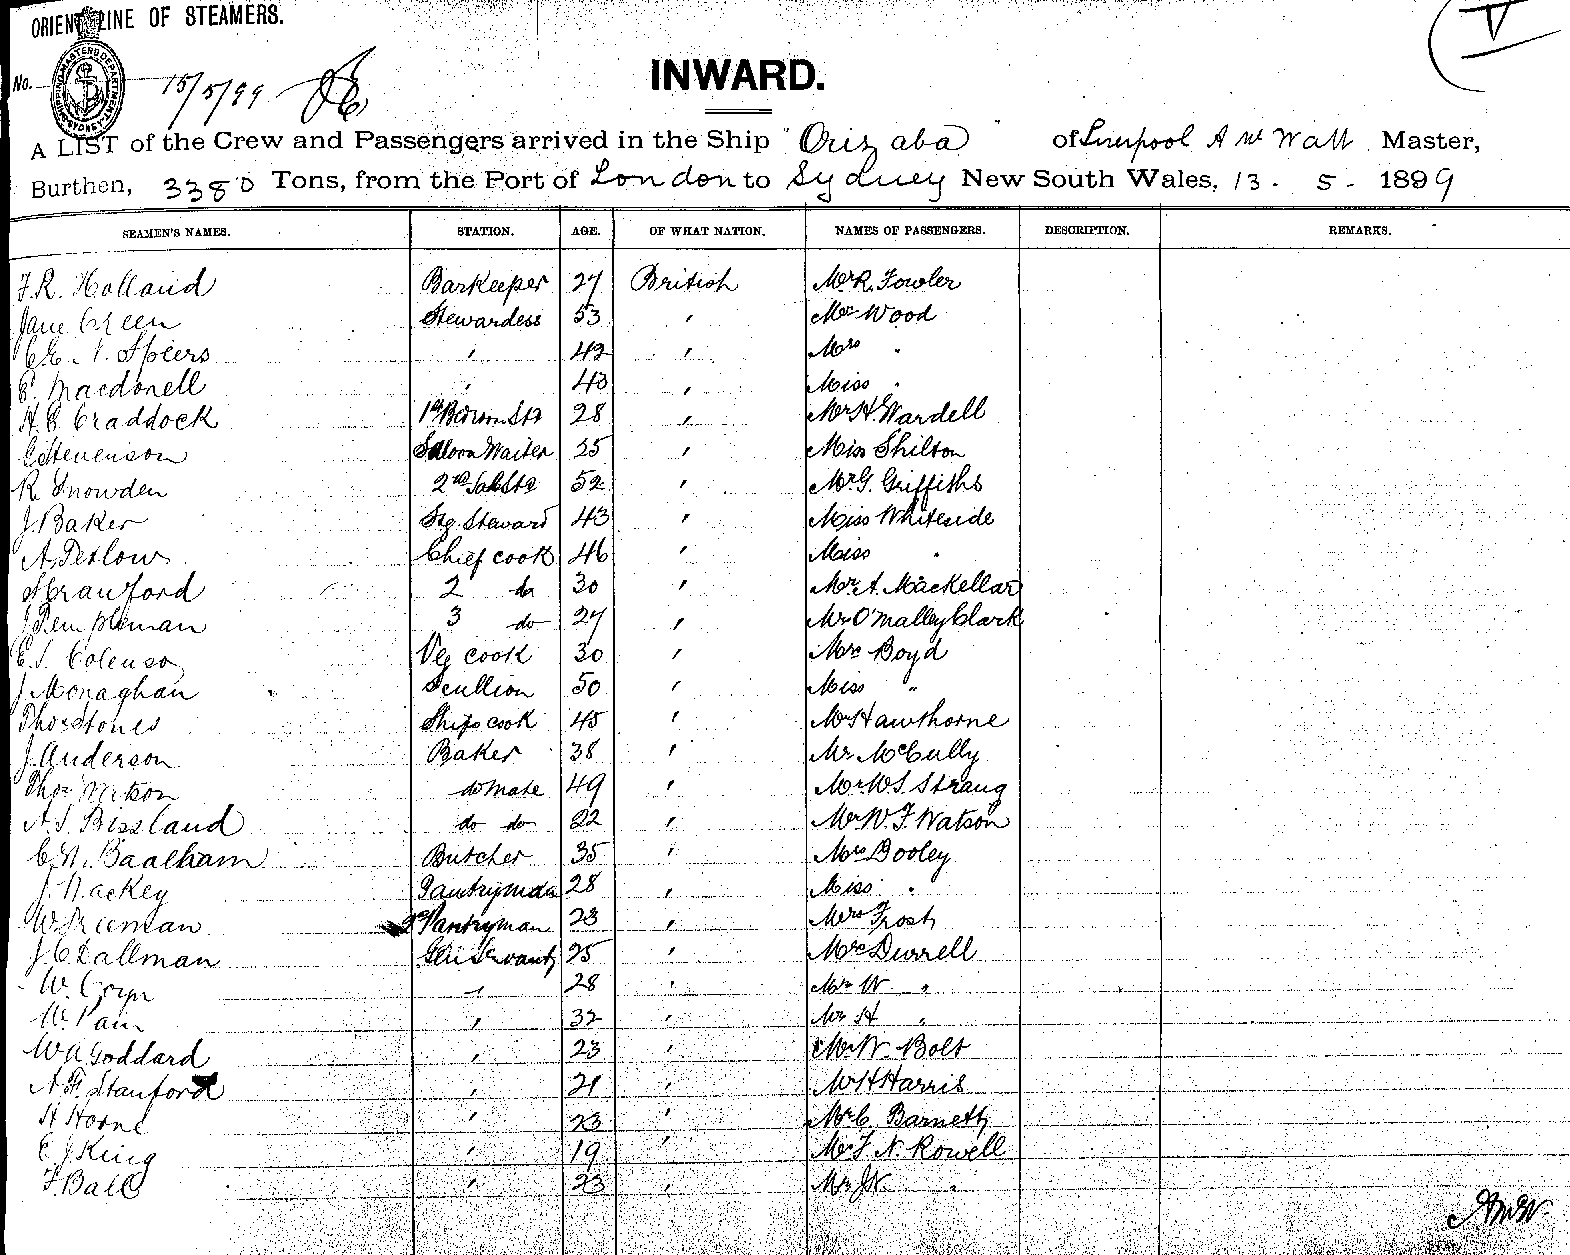 ORIENT LINE OF STEAMERS.
V
No.
15/5/99
INWARD.
A LIST of the Crew and Passengers arrived in the Ship "Orizaba" of Liverpool Master,
Burthen, 3380 Tons, from the Port of London to Sydney New South Wales, 13 . 5 . 1899
SEAMEN'S NAMES. STATION. AGE. OF WHAT NATION. NAMES OF PASSENGERS. DESCRIPTION. REMARKS.
F.R. Holland Barkeeper 27 British Mr R. Fowler
Jane Green Stewardess 53 " Mr Wood
Speers " 42 " Mrs "
Macdonell " 43 " Miss "
H.C. Craddock 28 " Mr H. Wardell
C Stevenson Saloon Waiter 25 " Miss Shilton
R. Snowden 2nd 52 " Mr G. Griffiths
J. Baker Stg. Steward 43 " Miss Whiteside
A. Chief cook 46 " Miss "
Crawford 2 do 30 " Mr A. Mackellar
J Templeman 3 do 27 " Mr O'Malley Clark
E.S. Colenso Veg cook 30 " Mrs Boyd
J. Monaghan Scullion 50 " Miss "
Thos Stones Ships cook 45 " Mr Hawthorne
J. Anderson Baker 38 " Mr McCully
Thos do mate 49 " Mr W.S. Strang
A.S. Bissland do do 22 " Mr W.F. Watson
C.W. Baalham Butcher 35 " Mrs Booley
J. Mackey Pantryman 28 " Miss "
W. Freeman 2nd Pantryman 23 " Mrs Frost
J.C. Dallman Genl Servants 25 " Mrs Durrell
W. " 28 " Mr W "
W. Pain " 32 " Mr H "
W A Goddard " 23 " Mr W. Bolt
A.F. Stanford " 21 " Mr H Harris
H Horne " 23 " Mr C. Barnett
E J King " 19 " Mr F. N. Rowell
F. Ball " 23 " Mr J K "